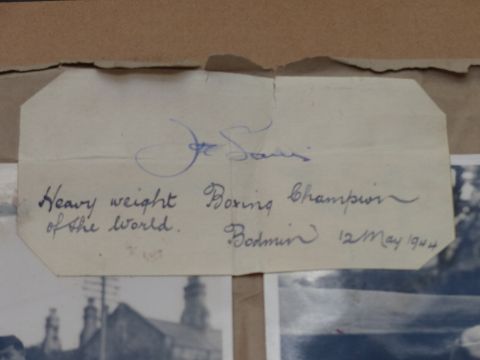 Joe Louis
Heavy weight Boxing Champion
of the World. Bodmin 12 May 1944